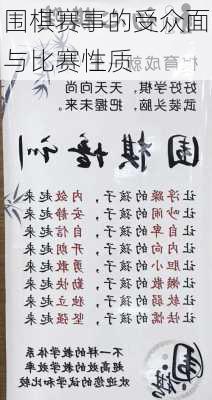 围棋赛事的受众面
与比赛性质
好好学棋,天天向尚
武装头脑,把握未来
围棋
让浮躁的孩子,内敛起来
让吵闹的孩子,安静起来
让自卑的孩子,自信起来
让内向的孩子,开朗起来
让胆小的孩子,勇敢起来
让懒散的孩子,勤快起来
让软弱的孩子,独立起来
让怯懦的孩子,坚强起来
不一样的教学体系
的教学效率
欢迎您的试学和比较
围棋